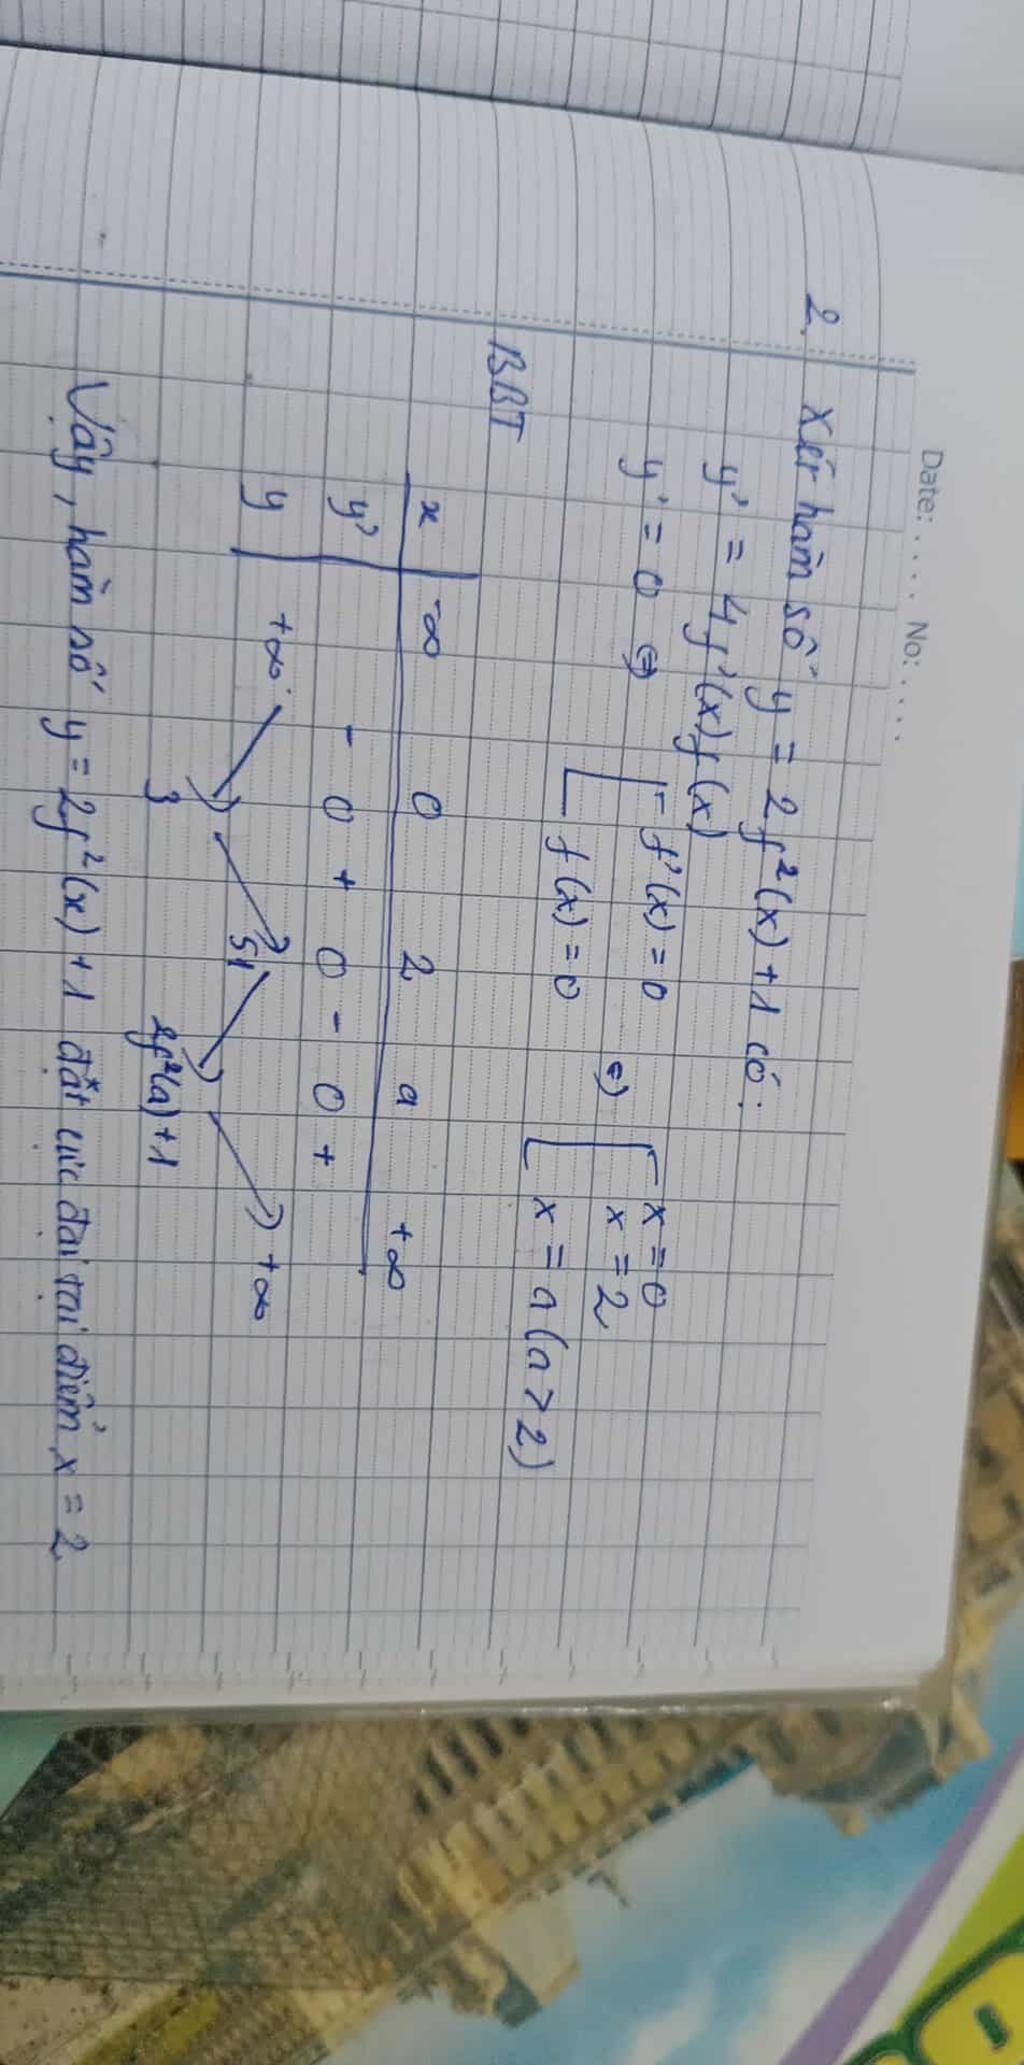 Date: .... No: ....
2. Xét hàm số y = 2f²(x) + 1 có:
y' = 4f'(x)f(x)
y' = 0 ⇔ [ f'(x) = 0 ⇔ [ x = 0
x = 2
f(x) = 0 x = a (a > 2)
BBT
x -∞ 0 2 a +∞
y' - 0 + 0 - 0 +
y +∞ 51 +∞
3 2f²(a) + 1
Vậy, hàm số y = 2f²(x) + 1 đạt cực đại tại điểm x = 2